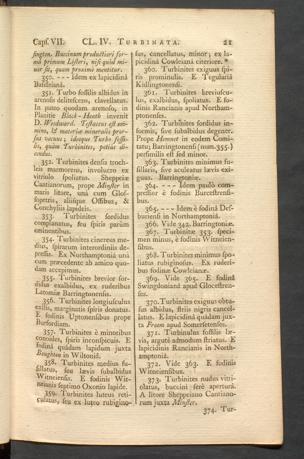 Capſ. VII. CL. IV. TURBINATA. 21
ſington. Buccinum productiori for-
mâ primum Liſteri, niſi quid mi-
nor ſit, quam proximè mentitur.
350. --- Idem ex lapicidinâ
351. Turbo foſſilis albidus in
arenoſis deliteſcens, clavellatus.
In puteo quodam arenoſo, in
Planitie Black-Heath invenit
D. Woodward. Teſtaceus eſt om-
nino, & materiæ mineralis pror-
ſus vacuus; ideoque Turbo foſſi-
lis, quàm Turbinites, potius di-
cendus.
352. Turbinites denſa troch-
leis marmoreus, involucro ex
vitriolo ſpoliatus. Sheppeiæ
Cantianorum, prope Minſter in
maris litore, unà cum Gloſ-
ſopetris, aliiſque Oſſibus, &
Conchyliis lapideis.
353. Turbinites ſordidus
complanatus, ſeu ſpiris parùm
eminentibus.
354. Turbinites cinereus me-
dius, ſpirarum interordiniis de-
preſſis. Ex Northamptoniâ unà
cum præcedente ab amico quo-
dam accepimus.
355. Turbinites brevior ſor-
didus exalbidus, ex ruderibus
Latomiæ Barringtonensis.
356. Turbinites longiuſculus
exilis, marginatis ſpiris donatus.
E fodinis Uptonensibus prope
Burfordiam.
357. Turbinites è minoribus
conoides, ſpiris inconſpicuis. E
fodinâ quâdam lapidum juxta
Boughton in Wiltoniâ.
358. Turbinites medius fu-
ſellatus, ſeu lævis ſubalbidus
Witneiensis. E fodinis Wit-
neianis ſeptimo Oxonio lapide.
359. Turbinites luteus reti-
culatus, ſeu ex luteo rubigino-
ſus, cancellatus, minor; ex la-
picidinâ Cowleianâ citeriore.
360. Turbinites exiguus ſpi-
ris prominulis. E Tegulariâ
Kidlingtonensi.
361. Turbinites breviuſcu-
lus, exalbidus, ſpoliatus. E fo-
dinis Rancianis apud Northam-
ptonienses.
362. Turbinites
fodinis, ſive ſubalbidus degener.
Prope Hemnet in eodem Comi-
tatu; Barringtonensi (num. 355.)
perſimilis eſt ſed minor.
363. Turbinites minimus fu-
ſillaris, ſive aculeatus lævis exi-
guus. Barringtoniæ.
364. --- Idem paulò com-
preſſior è fodinis
365. --- Idem è fodinâ Deſ-
buriensi in Northamptoniâ.
366. Vide 342. Barringtonien.
367. Turbinitæ 353. ſpeci-
men minus, è fodinis Witneien-
ſibus.
368. Turbinites minimus ſpo-
liatus rubiginoſus. Ex ruderi-
bus fodinæ Cowleianæ.
369. Vide 365. E fodinâ
Swingdonianâ apud Gloceſtren-
ſes.
370. Turbinites exiguus obtu-
ſus albidus, ſtriis nigris cancel-
latus. E lapicidinâ quâdam jux-
ta Froom apud Somerſetenses.
371. Turbinulus foſſilis læ-
vis, argutè admodum ſtriatus. E
lapicidinis Rancianis in North-
amptoniâ.
372. Vide 363. E fodinis
Witneiensibus.
373. Turbinites nudus vitri-
olatus, buccini ferè apertura.
A litore Sheppeiano Cantiano-
rum juxta Minſter.
374. Tur-